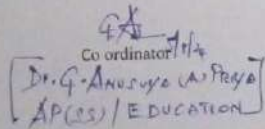 Co ordinator
Dr. G. ANUSUYA (A) PRIYA
AP(SS) / EDUCATION